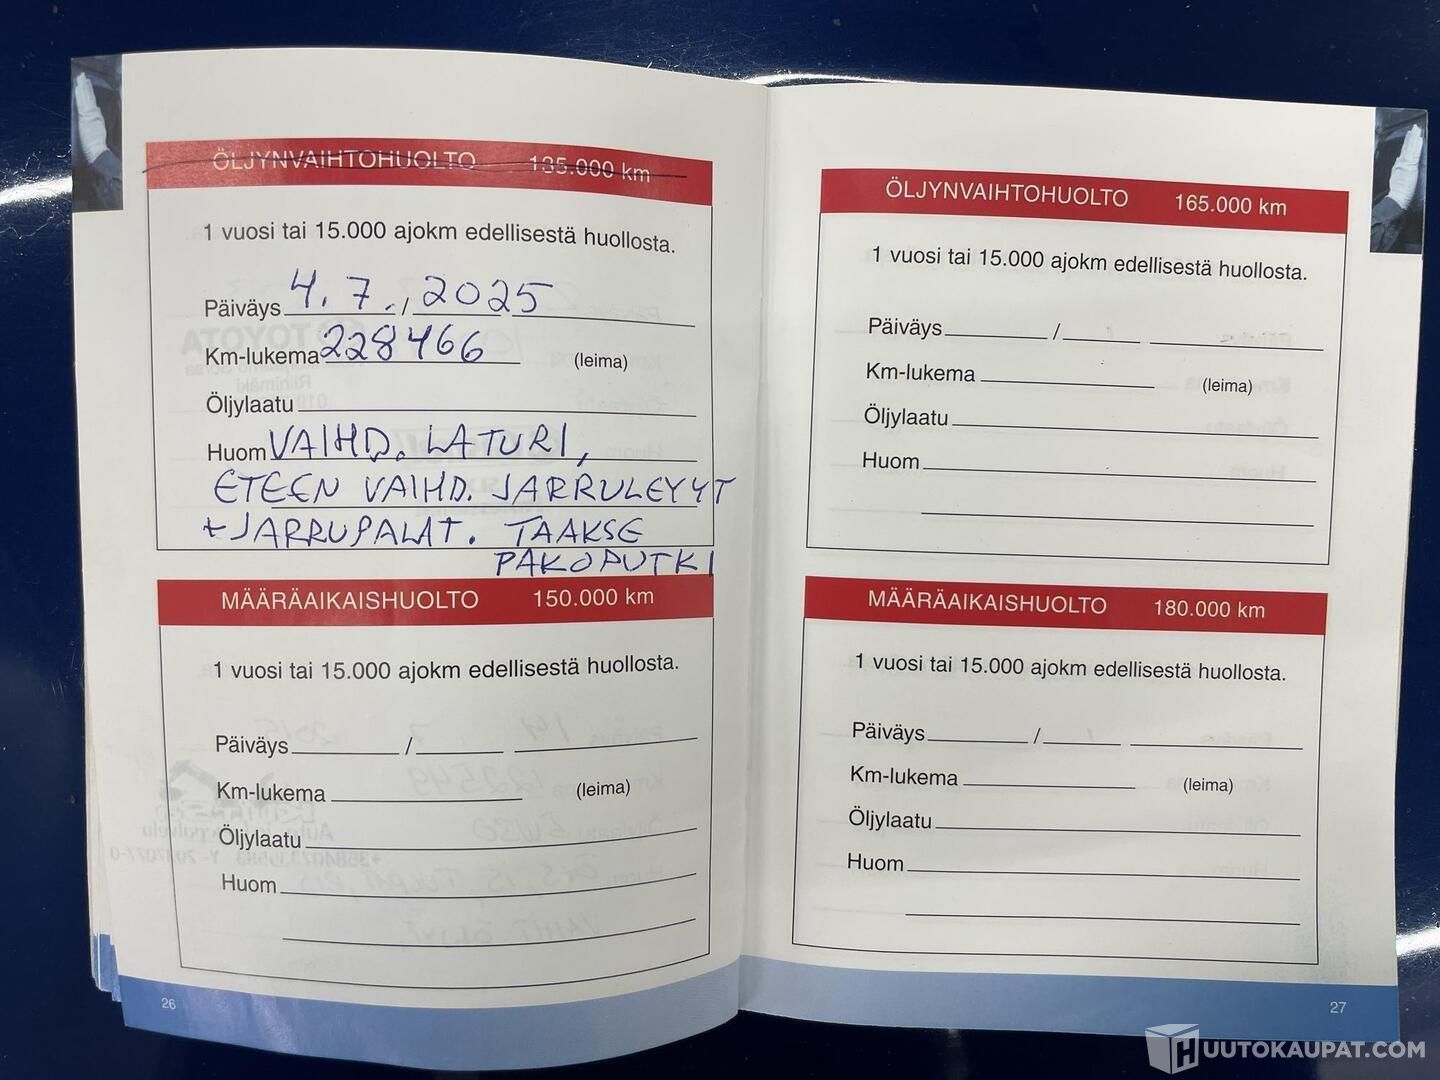 ÖLJYNVAIHTOHUOLTO 135.000 km
1 vuosi tai 15.000 ajokm edellisestä huollosta.
Päiväys 4. 7. / 2025
Km-lukema 228466 (leima)
Öljylaatu
Huom VAIHD. LATURI,
ETEEN VAIHD. JARRULEVYT
+JARRUPALAT. TAAKSE
PAKOPUTKI
MÄÄRÄAIKAISHUOLTO 150.000 km
1 vuosi tai 15.000 ajokm edellisestä huollosta.
Päiväys /
Km-lukema (leima)
Öljylaatu
Huom
26
ÖLJYNVAIHTOHUOLTO 165.000 km
1 vuosi tai 15.000 ajokm edellisestä huollosta.
Päiväys /
Km-lukema (leima)
Öljylaatu
Huom
MÄÄRÄAIKAISHUOLTO 180.000 km
1 vuosi tai 15.000 ajokm edellisestä huollosta.
Päiväys /
Km-lukema (leima)
Öljylaatu
Huom
27
HUUTOKAUPAT.COM